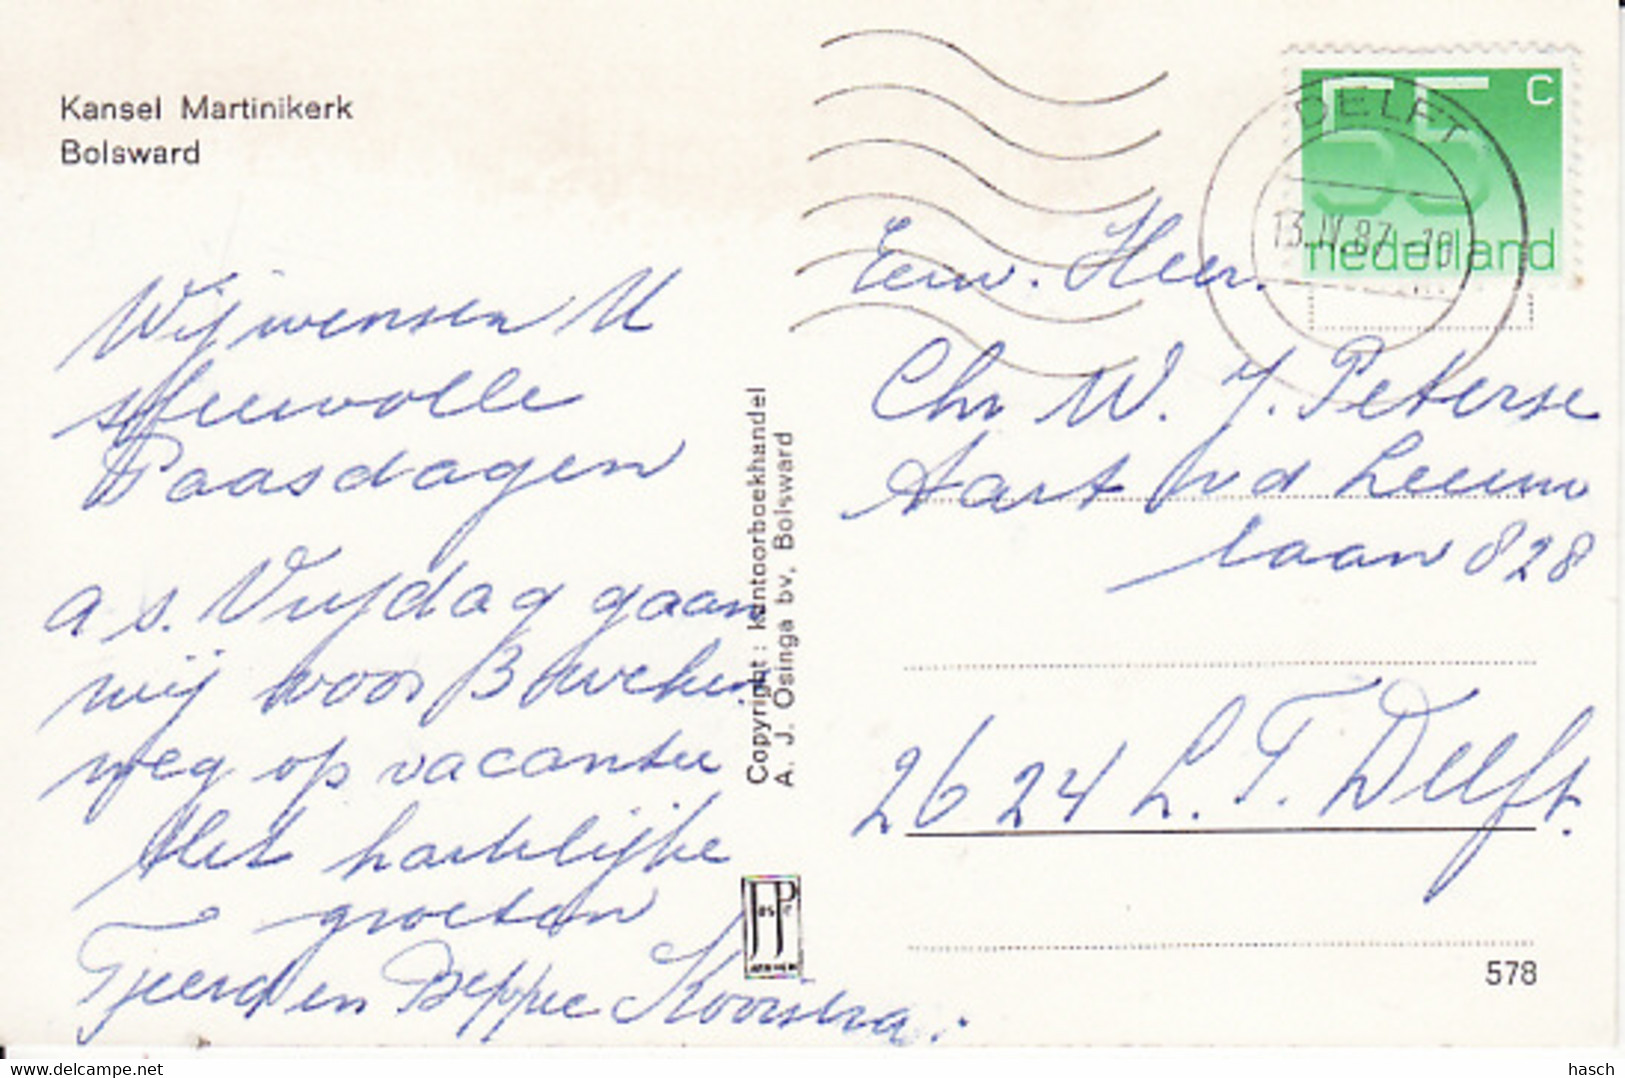 Kansel Martinikerk
Bolsward
Wij wensen U
sfeervolle
Paasdagen
a.s. Vrijdag gaan
wij voor 3 weken
weg op vacantie
Met hartelijke
groeten
Tjeerd en Beppie Kooistra.
Copyright : kantoorboekhandel
A. J. Osinga bv, Bolsward
DELFT
13.IV.87.-18
55 c
nederland
Eerw. Heer.
Chr W. J. Peterse
Aart v d Leeuw
laan 828
2624 L. T. Delft.
578
hasch